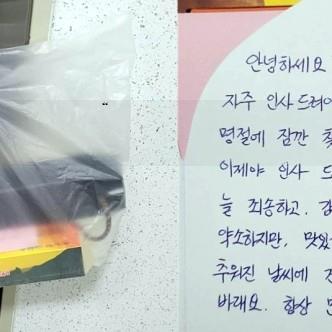 안녕하세요
자주 인사 드려야
명절에 잠깐
이제야 인사
늘 죄송하고,
약소하지만, 맛있
추워진 날씨에
바래요. 항상